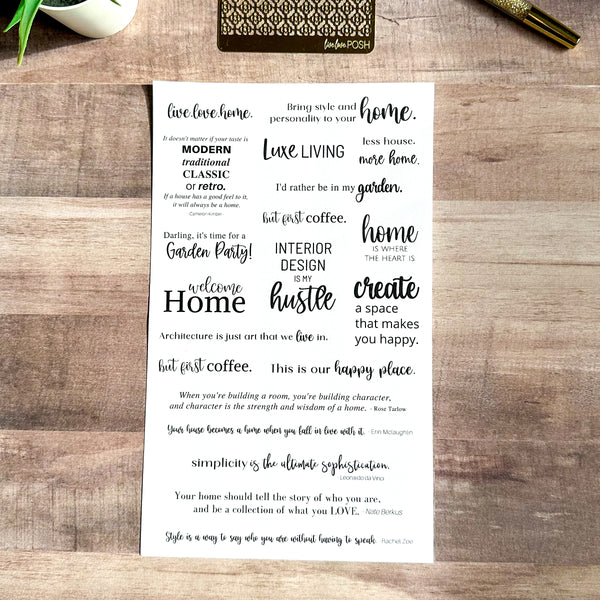 live love POSH
live.love.home.
Bring style and
personality to your home.
It doesn't matter if your taste is
MODERN
traditional
CLASSIC
or retro.
If a house has a good feel to it,
it will always be a home.
- Cameron Kimber
Luxe LIVING
less house.
more home.
I'd rather be in my garden.
but first coffee.
home
IS WHERE
THE HEART IS
Darling, it's time for a
Garden Party!
INTERIOR
DESIGN
IS MY
hustle
welcome
Home
create
a space
that makes
you happy.
Architecture is just art that we live in.
but first coffee.
This is our happy place.
When you're building a room, you're building character,
and character is the strength and wisdom of a home. - Rose Tarlow
Your house becomes a home when you fall in love with it. - Erin Mclaughlin
simplicity is the ultimate sophistication.
Leonardo da Vinci
Your home should tell the story of who you are,
and be a collection of what you LOVE. - Nate Berkus
Style is a way to say who you are without having to speak. - Rachel Zoe